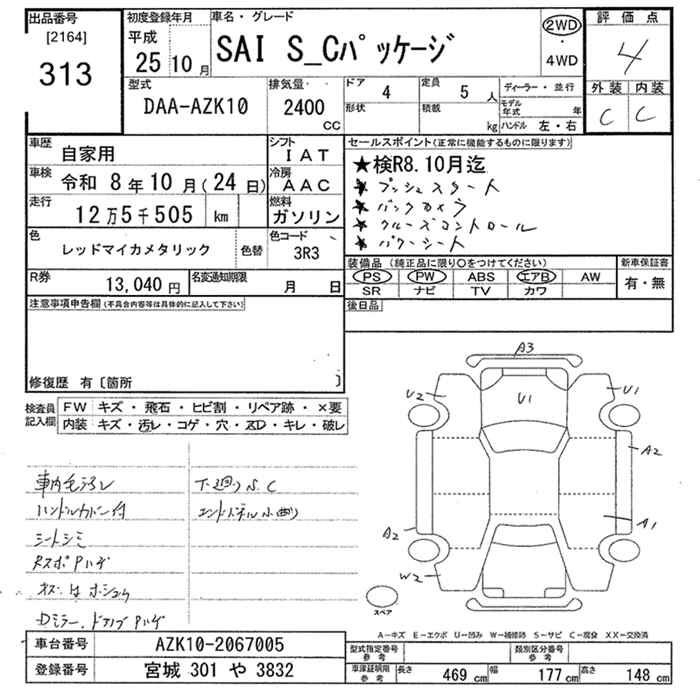 出品番号
[2164]
313
初度登録年月
平成
25 10 月
車名・グレード
SAI S_Cパッケージ
2WD
・
4WD
評価点
4
外装 内装
C C
型式
DAA-AZK10
排気量
2400
CC
ドア
4
定員
5 人
形状
積載
kg
ディーラー・並行
モデル年式 年
ハンドル 左・右
車歴
自家用
シフト
IAT
車検 令和 8年10月(24日)
冷房
AAC
走行
12万5千505 km
燃料
ガソリン
色
レッドマイカメタリック
色替
色コード
3R3
R券
13,040 円
名変通知期限
月 日
セールスポイント(正常に機能するものに限ります)
★検R8.10月迄
★ プッシュスタート
★ バックカメラ
★ クルーズコントロール
★ パワーシート
装備品(純正品に限り○をつけてください)
PS PW ABS エアB AW
SR ナビ TV カワ
新車保証書
有・無
後日品
注意事項申告欄(不具合内容等は具体的に記入して下さい)
修復歴 有〔箇所 〕
検査員記入欄
FW キズ・飛石・ヒビ割・リペア跡・×要
内装 キズ・汚レ・コゲ・穴・ズD・キレ・破レ
車内毛汚レ
ハンドルカバー付
シートシミ
RスポPハゲ
Dミラー、ドアノブPハゲ
下廻りS.C
エンドパネル小曲り
A3
U2
U1
U1
A2
A1
A2
W2
スペア
A-キズ E-エクボ U-凹み W-補修跡 S-サビ C-腐食 XX-交換済
車台番号
AZK10-2067005
登録番号
宮城 301 や 3832
型式指定番号
参考
類別区分番号
参考
車庫証明用
参考
長さ 469 cm 幅 177 cm 高さ 148 cm